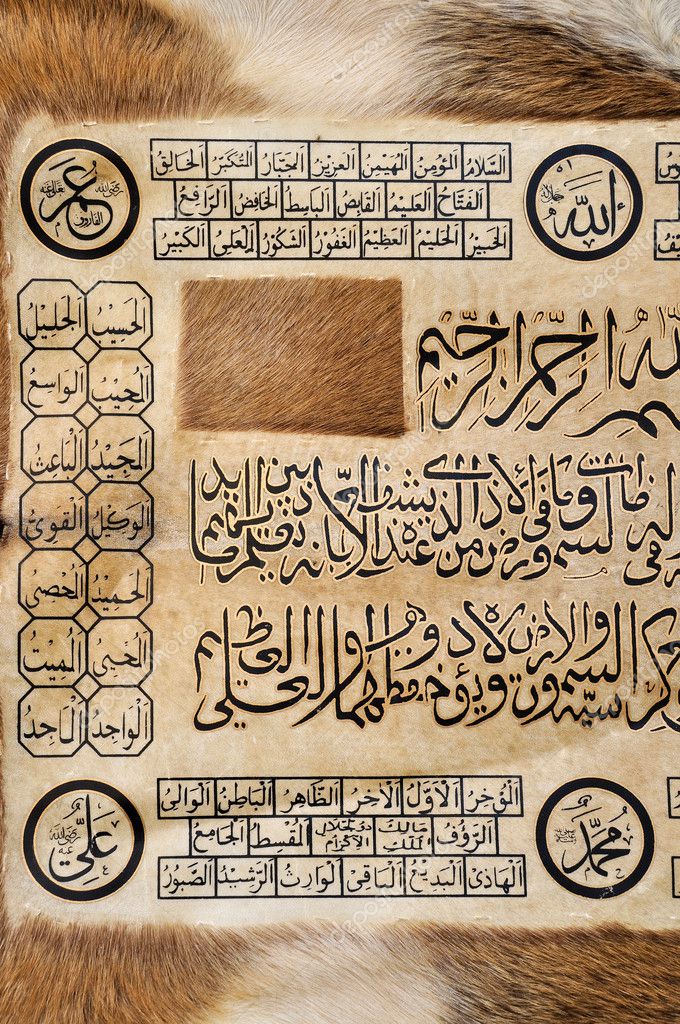 اَلسَّلَامُ اَلْمُؤْمِنُ اَلْمُهَيْمِنُ اَلْعَزِيزُ اَلْجَبَّارُ اَلْمُتَكَبِّرُ اَلْخَالِقُ
اَلْفَتَّاحُ اَلْعَلِيمُ اَلْقَابِضُ اَلْبَاسِطُ اَلْخَافِضُ اَلرَّافِعُ
اَلْخَبِيرُ اَلْحَلِيمُ اَلْعَظِيمُ اَلْغَفُورُ اَلشَّكُورُ اَلْعَلِىُّ اَلْكَبِيرُ
اَللّٰه جل جلاله
عُمَر الفاروق رضى الله تعالى عنه
اَلْحَسِيبُ اَلْجَلِيلُ
اَلْمُجِيبُ اَلْوَاسِعُ
اَلْمَجِيدُ اَلْبَاعِثُ
اَلْوَكِيلُ اَلْقَوِىُّ
اَلْحَمِيدُ اَلْمُحْصِى
اَلْمُحْيِى اَلْمُمِيتُ
اَلْوَاجِدُ اَلْمَاجِدُ
الله الرحمن الرحيم
فى السموات وما فى الارض من ذا الذى يشفع عنده الا باذنه يعلم ما بين ايديهم
كرسيه السموات والارض ولا يؤده حفظهما وهو العلى العظيم
اَلْمُؤَخِّرُ اَلْأَوَّلُ اَلْآخِرُ اَلظَّاهِرُ اَلْبَاطِنُ اَلْوَالِى
اَلرَّؤُفُ مَالِكُ الْمُلْكِ ذُو الْجَلَالِ وَالْاِكْرَامِ اَلْمُقْسِطُ اَلْجَامِعُ
اَلْهَادِى اَلْبَدِيعُ اَلْبَاقِى اَلْوَارِثُ اَلرَّشِيدُ اَلصَّبُورُ
مُحَمَّد
عَلِىّ رضى الله عنه
depositphotos